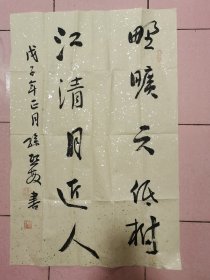 野曠天低樹
江清月近人
戊子年正月孫
書